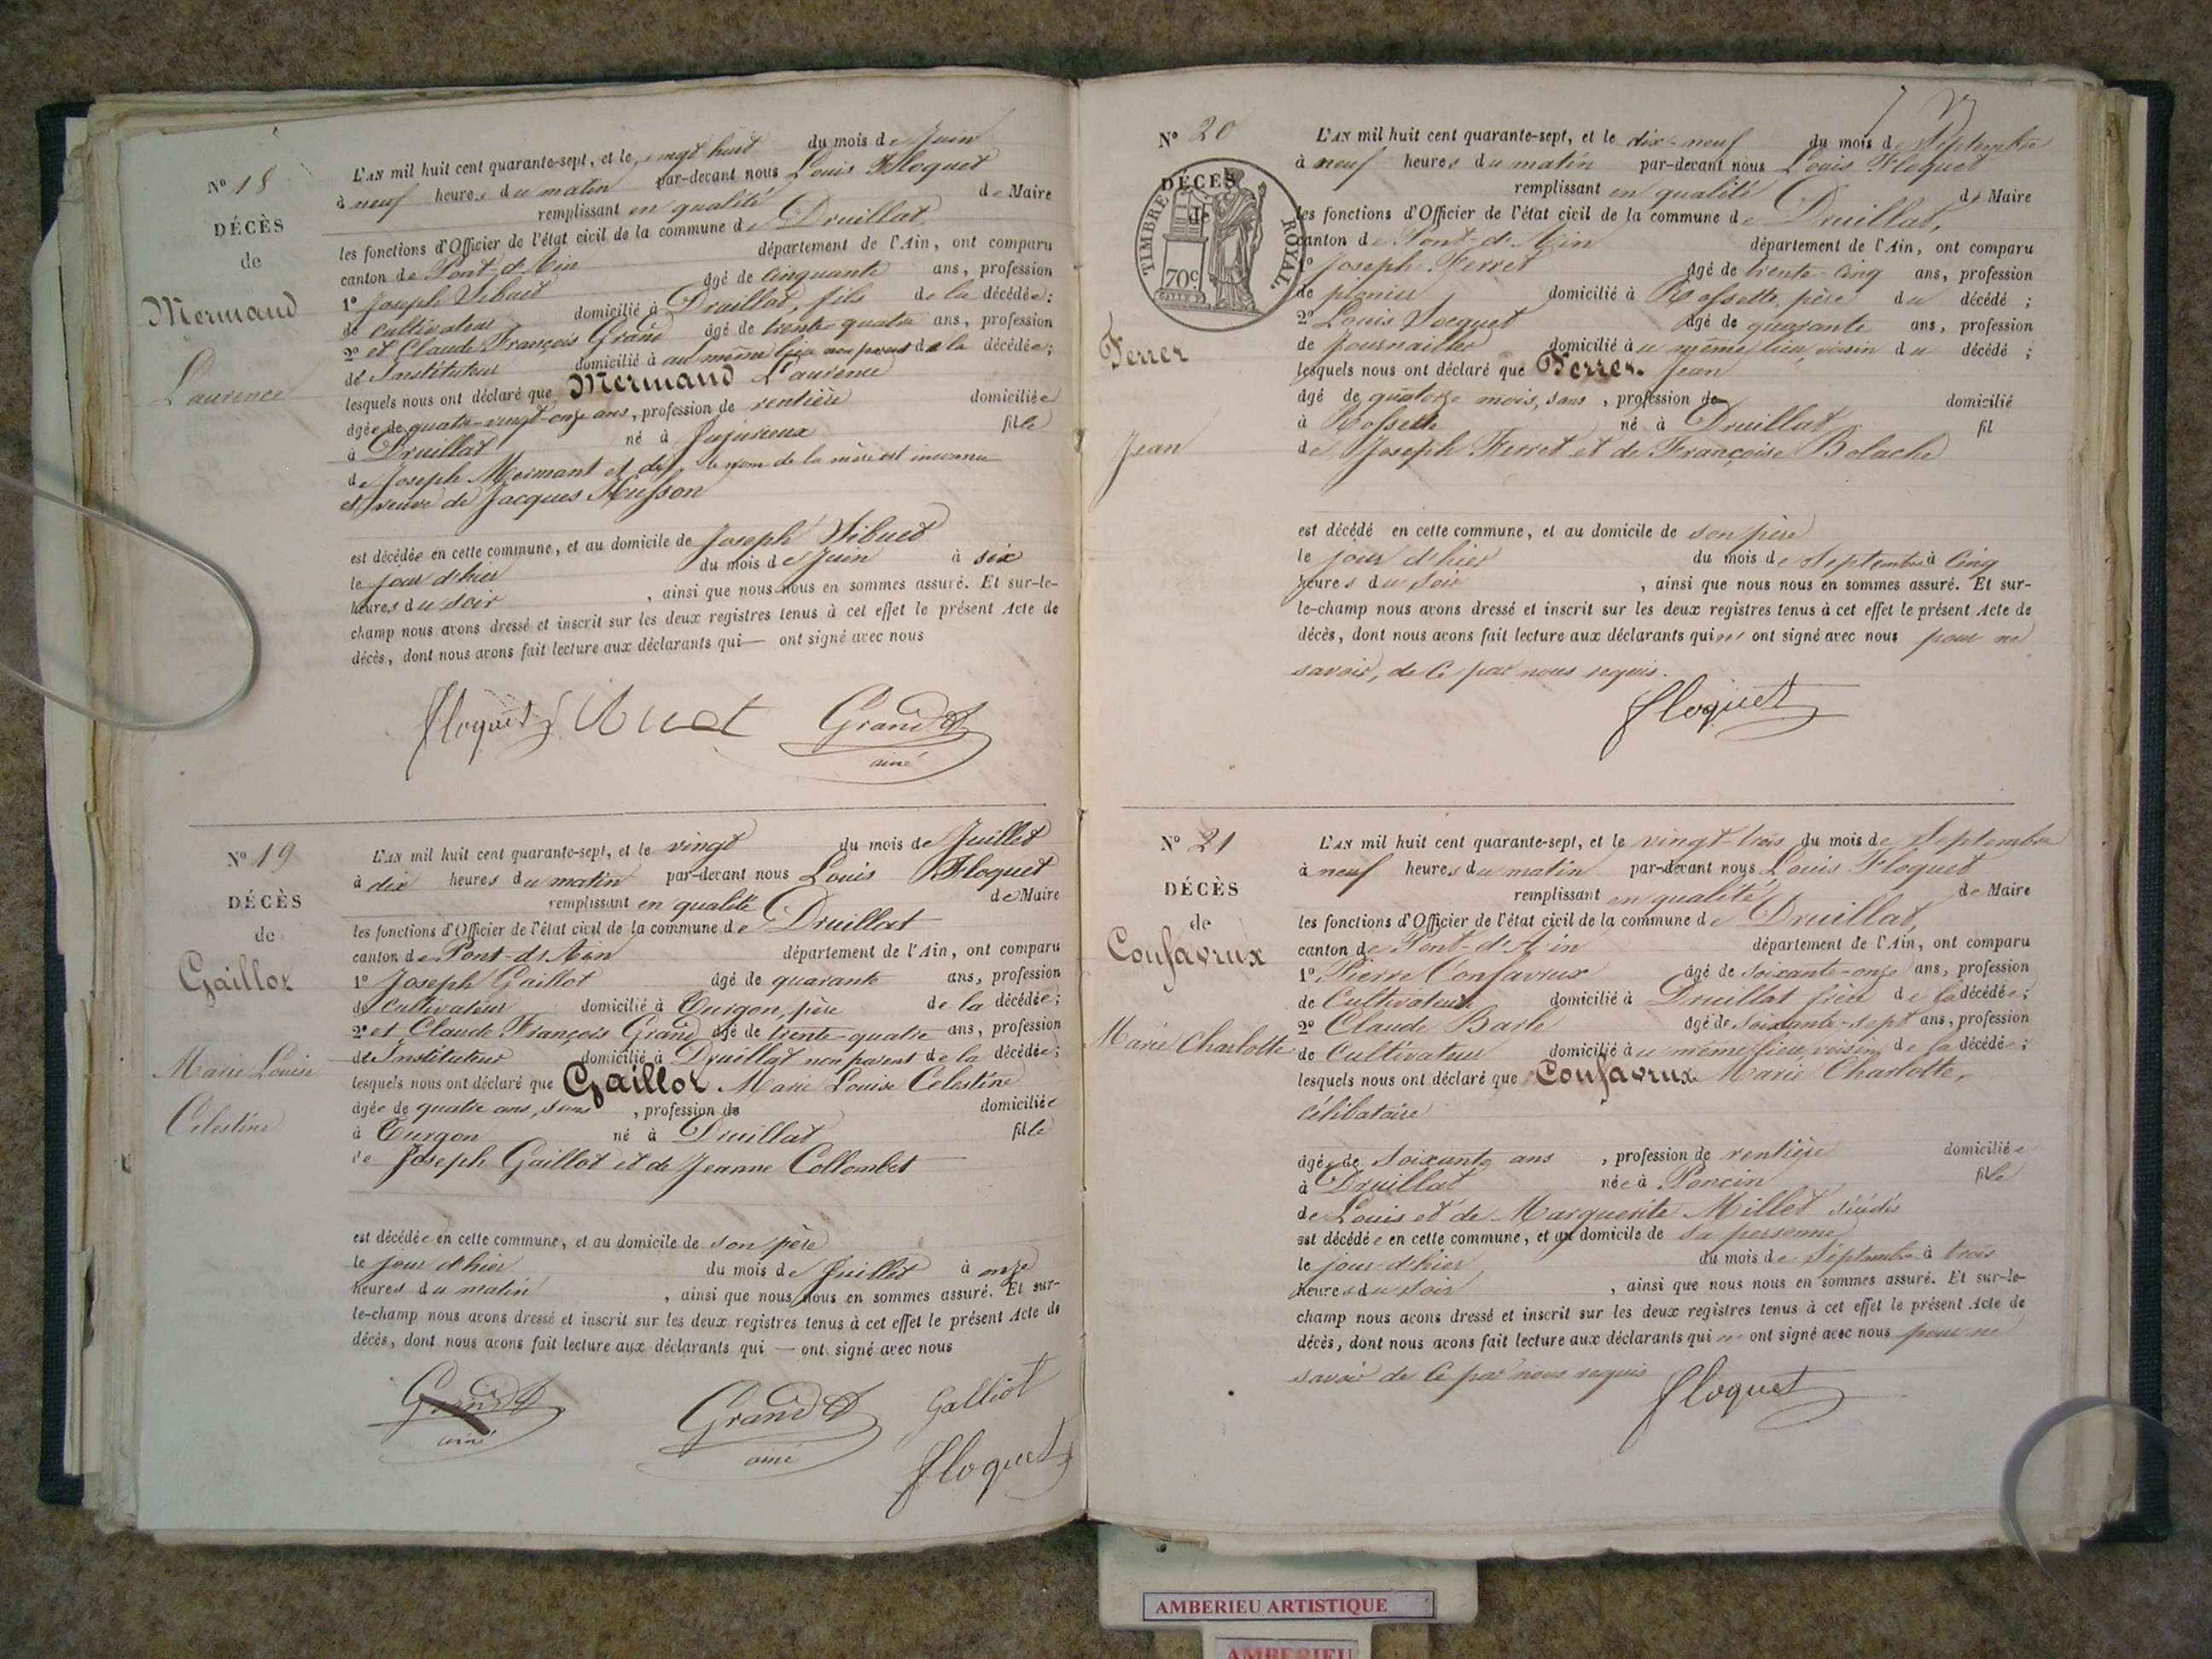 N° 18
DÉCÈS
de
Mermand
Laurence
L'AN mil huit cent quarante-sept, et le vingt huit du mois de Juin
à neuf heures du matin par-devant nous Louis Floquet
remplissant en qualité de Maire
les fonctions d'Officier de l'état civil de la commune de Druillat,
canton de Pont-d'Ain département de l'Ain, ont comparu
1° Joseph Sibuet âgé de cinquante ans, profession
de cultivateur domicilié à Druillat, fils de la décédée;
2° et Claude François Grand âgé de trente-quatre ans, profession
de Instituteur domicilié à au même lieu non parent de la décédée;
lesquels nous ont déclaré que Mermand Laurence
âgée de quatre-vingt-onze ans, profession de rentière domiciliée
à Druillat né à Jujurieux fille
de Joseph Mermant et de le nom de la mère est inconnu
et veuve de Jacques Husson
est décédée en cette commune, et au domicile de Joseph Sibuet
le jour d'hier du mois de Juin à six
heures du soir , ainsi que nous nous en sommes assuré. Et sur-le-
champ nous avons dressé et inscrit sur les deux registres tenus à cet effet le présent Acte de
décès, dont nous avons fait lecture aux déclarants qui — ont signé avec nous
Floquet Sibuet Grand
ainé
N° 19
DÉCÈS
de
Gaillot
Marie Louise
Celestine
L'AN mil huit cent quarante-sept, et le vingt du mois de Juillet
à dix heures du matin par-devant nous Louis Floquet
remplissant en qualité de Maire
les fonctions d'Officier de l'état civil de la commune de Druillat
canton de Pont-d'Ain département de l'Ain, ont comparu
1° Joseph Gaillot âgé de quarante ans, profession
de Cultivateur domicilié à Turgon, père de la décédée;
2° et Claude François Grand âgé de trente-quatre ans, profession
de Instituteur domicilié à Druillat non parent de la décédée;
lesquels nous ont déclaré que Gaillot Marie Louise Celestine
âgée de quatre ans, sans , profession de domiciliée
à Turgon né à Druillat fille
de Joseph Gaillot et de Jeanne Collombet
est décédée en cette commune, et au domicile de son père
le jour d'hier du mois de Juillet à onze
heures du matin , ainsi que nous nous en sommes assuré. Et sur-
le-champ nous avons dressé et inscrit sur les deux registres tenus à cet effet le présent Acte de
décès, dont nous avons fait lecture aux déclarants qui — ont signé avec nous
Grand Grand Galliot
ainé ainé Floquet
N° 20
DÉCÈS
de
TIMBRE ROYAL.
70c
Ferret
Jean
L'AN mil huit cent quarante-sept, et le dix-neuf du mois de Septembre
à neuf heures du matin par-devant nous Louis Floquet
remplissant en qualité de Maire
les fonctions d'Officier de l'état civil de la commune de Druillat,
canton de Pont-d'Ain département de l'Ain, ont comparu
1° Joseph Ferret âgé de trente-cinq ans, profession
de domicilié à Rossette, père du décédé ;
2° Louis Vocquet âgé de quarante ans, profession
de Journailler domicilié au même lieu, voisin du décédé ;
lesquels nous ont déclaré que Ferret Jean
âgé de quatorze mois, sans , profession de domicilié
à Rossette né à Druillat fil
de Joseph Ferret et de Françoise Bolache
est décédé en cette commune, et au domicile de son père
le jour d'hier du mois de Septembre à cinq
heures du soir , ainsi que nous nous en sommes assuré. Et sur-
le-champ nous avons dressé et inscrit sur les deux registres tenus à cet effet le présent Acte de
décès, dont nous avons fait lecture aux déclarants qui n' ont signé avec nous pour ne
savoir, de ce par nous requis.
Floquet
N° 21
DÉCÈS
de
Confavrux
Marie Charlotte
L'AN mil huit cent quarante-sept, et le vingt-trois du mois de Septembre
à neuf heures du matin par-devant nous Louis Floquet
remplissant en qualité de Maire
les fonctions d'Officier de l'état civil de la commune de Druillat,
canton de Pont-d'Ain département de l'Ain, ont comparu
1° Pierre Confavrux âgé de soixante-onze ans, profession
de Cultivateur domicilié à Druillat frère de la décédée;
2° Claude Barle âgé de soixante-sept ans, profession
de Cultivateur domicilié au même lieu, voisin de la décédée;
lesquels nous ont déclaré que Confavrux Marie Charlotte,
célibataire
âgée de soixante ans , profession de rentière domiciliée
à Druillat née à Poncin fille
de Louis et de Marguerite Millet décédés
est décédée en cette commune, et au domicile de sa personne
le jour d'hier du mois de Septembre à trois
heures du soir , ainsi que nous nous en sommes assuré. Et sur-le-
champ nous avons dressé et inscrit sur les deux registres tenus à cet effet le présent Acte de
décès, dont nous avons fait lecture aux déclarants qui n' ont signé avec nous pour ne
savoir de ce par nous requis
Floquet
AMBERIEU ARTISTIQUE
AMBERIEU